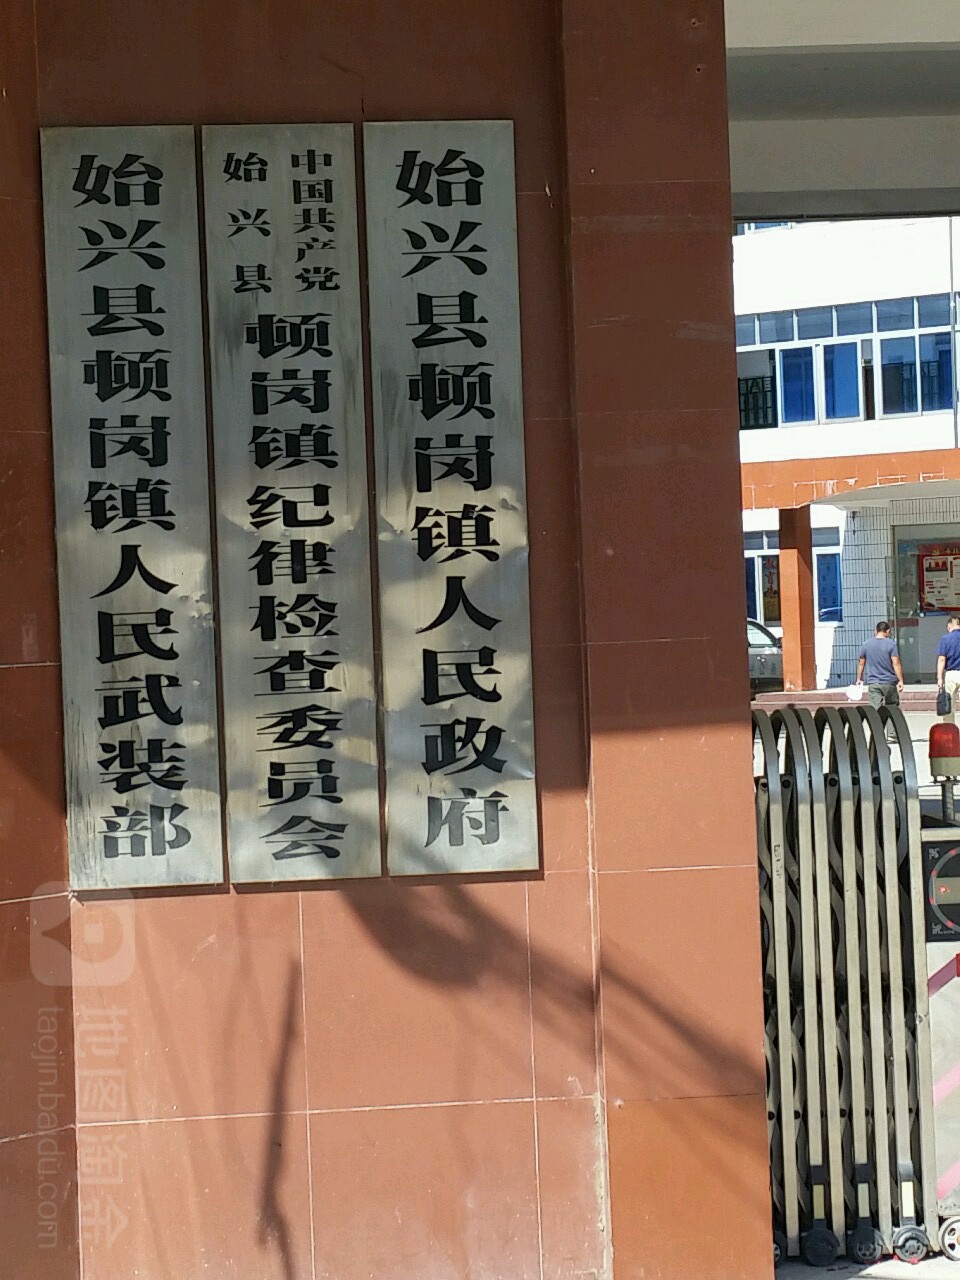 始兴县顿岗镇人民武装部
中国共产党
始兴县
顿岗镇纪律检查委员会
始兴县顿岗镇人民政府
地图淘金
taojin.baidu.com